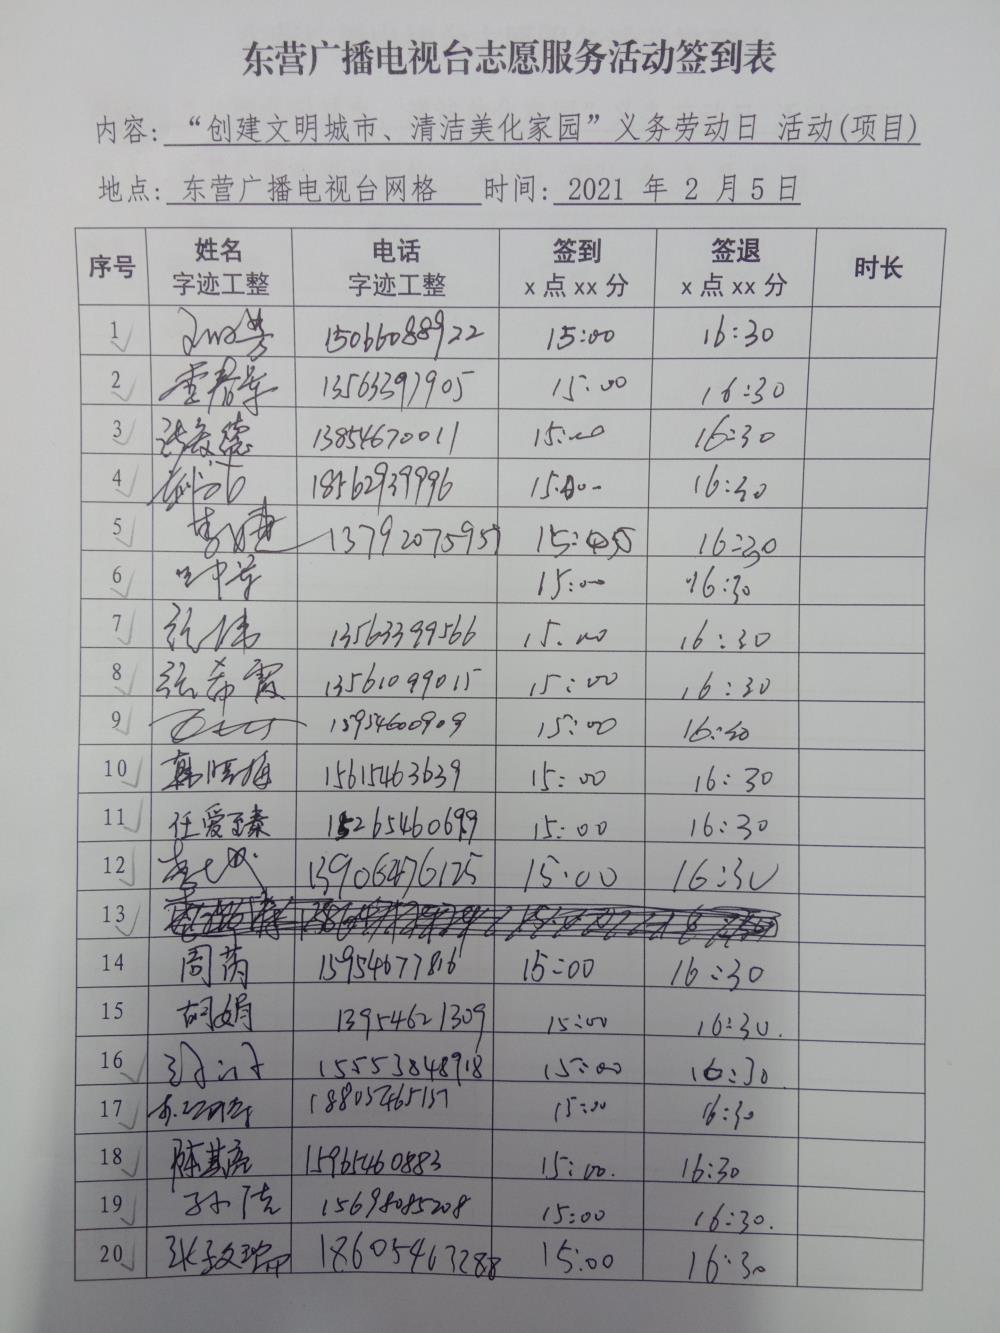 东营广播电视台志愿服务活动签到表
内容: “创建文明城市、清洁美化家园”义务劳动日 活动(项目)
地点: 东营广播电视台网格 时间: 2021 年 2 月 5 日
序号 姓名 电话 签到 签退 时长
字迹工整 字迹工整 x 点 xx 分 x 点 xx 分
1 15066088922 15:00 16:30
2 13563397905 15:00 16:30
3 13854670011 15:00 16:30
4 18562939996 15:00 16:30
5 李健 13792075957 15:05 16:30
6 15:00 16:30
7 张伟 13563399566 15:00 16:30
8 张希霞 13561099015 15:00 16:30
9 15954600909 15:00 16:30
10 韩晓梅 15615463639 15:00 16:30
11 任爱臻 15265460699 15:00 16:30
12 13906476125 15:00 16:30
13
14 周芮 15954677816 15:00 16:30
15 胡娟 13954621309 15:00 16:30.
16 15553848918 15:00 16:30
17 18805465157 15:00 16:30
18 陈其亮 15965460883 15:00. 16:30
19 孙浩 15698085208 15:00 16:30.
20 18605463288 15:00 16:30